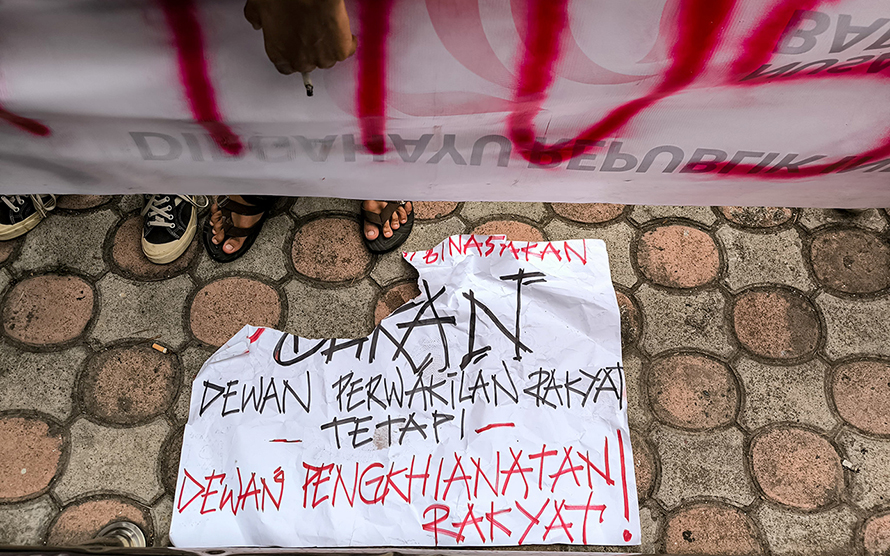 DIRGAHAYU REPUBLIK
BINASAKAN
BUKAN
DEWAN PERWAKILAN RAKYAT
- TETAPI -
DEWAN² PENGKHIANATAN
RAKYAT!